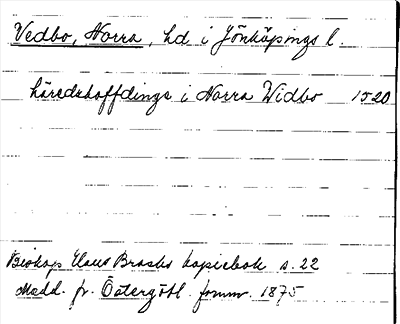 Vedbo, Norra, hd i Jönköpings l.
häredzhoffdinge i Norra Widbo 1520
Biskop Hans Brasks kopiebok s. 22
Medd. fr. Östergötl. fornm. 1875